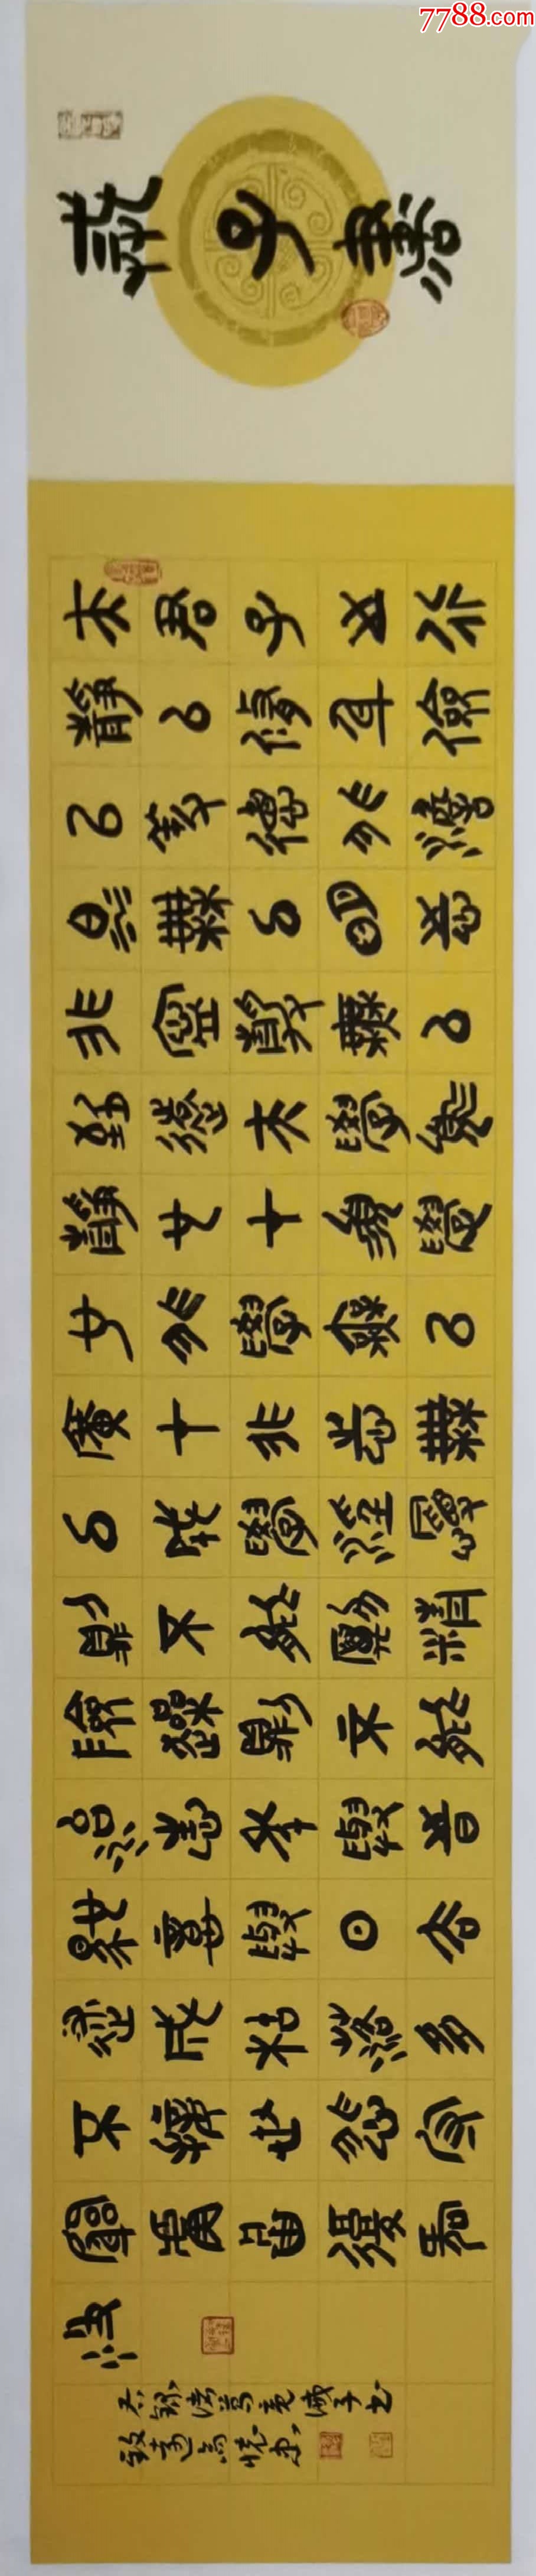 7788.com
誡子書
夫君子之行
靜以修身儉
以養德非澹
泊無以明志
非寧靜無以
致遠夫學須
靜也才須學
也非學無以
廣才非志無
以成學淫慢
則不能勵精
險躁則不能
治性年與時
馳意與日去
遂成枯落多
不接世悲守
窮廬將復何
及